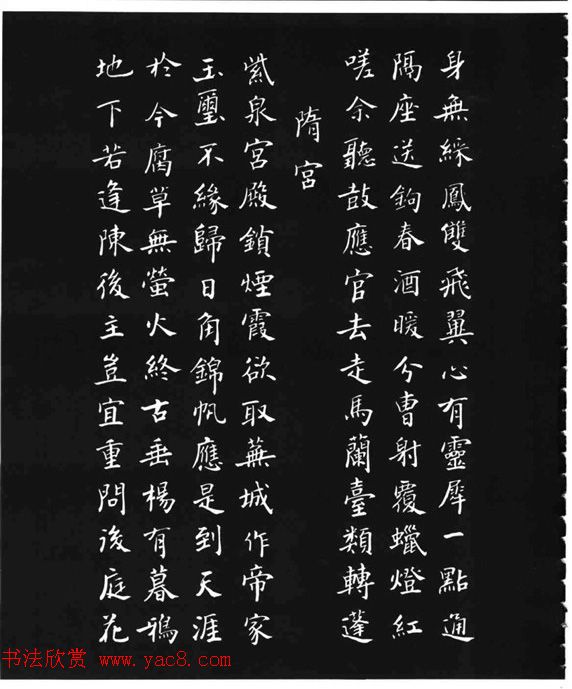 身無綵鳳雙飛翼心有靈犀一點通
隔座送鉤春酒暖分曹射覆蠟燈紅
嗟余聽鼓應官去走馬蘭臺類轉蓬
隋宮
紫泉宮殿鎖煙霞欲取蕪城作帝家
玉璽不緣歸日角錦帆應是到天涯
於今腐草無螢火終古垂楊有暮鴉
地下若逢陳後主豈宜重問後庭花
书法欣赏 www.yac8.com